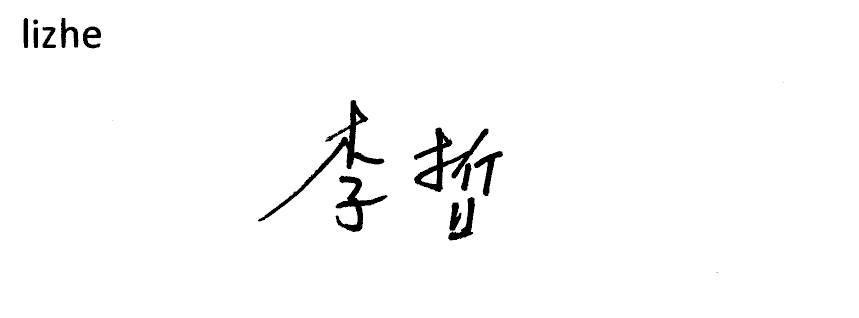 lizhe
李哲